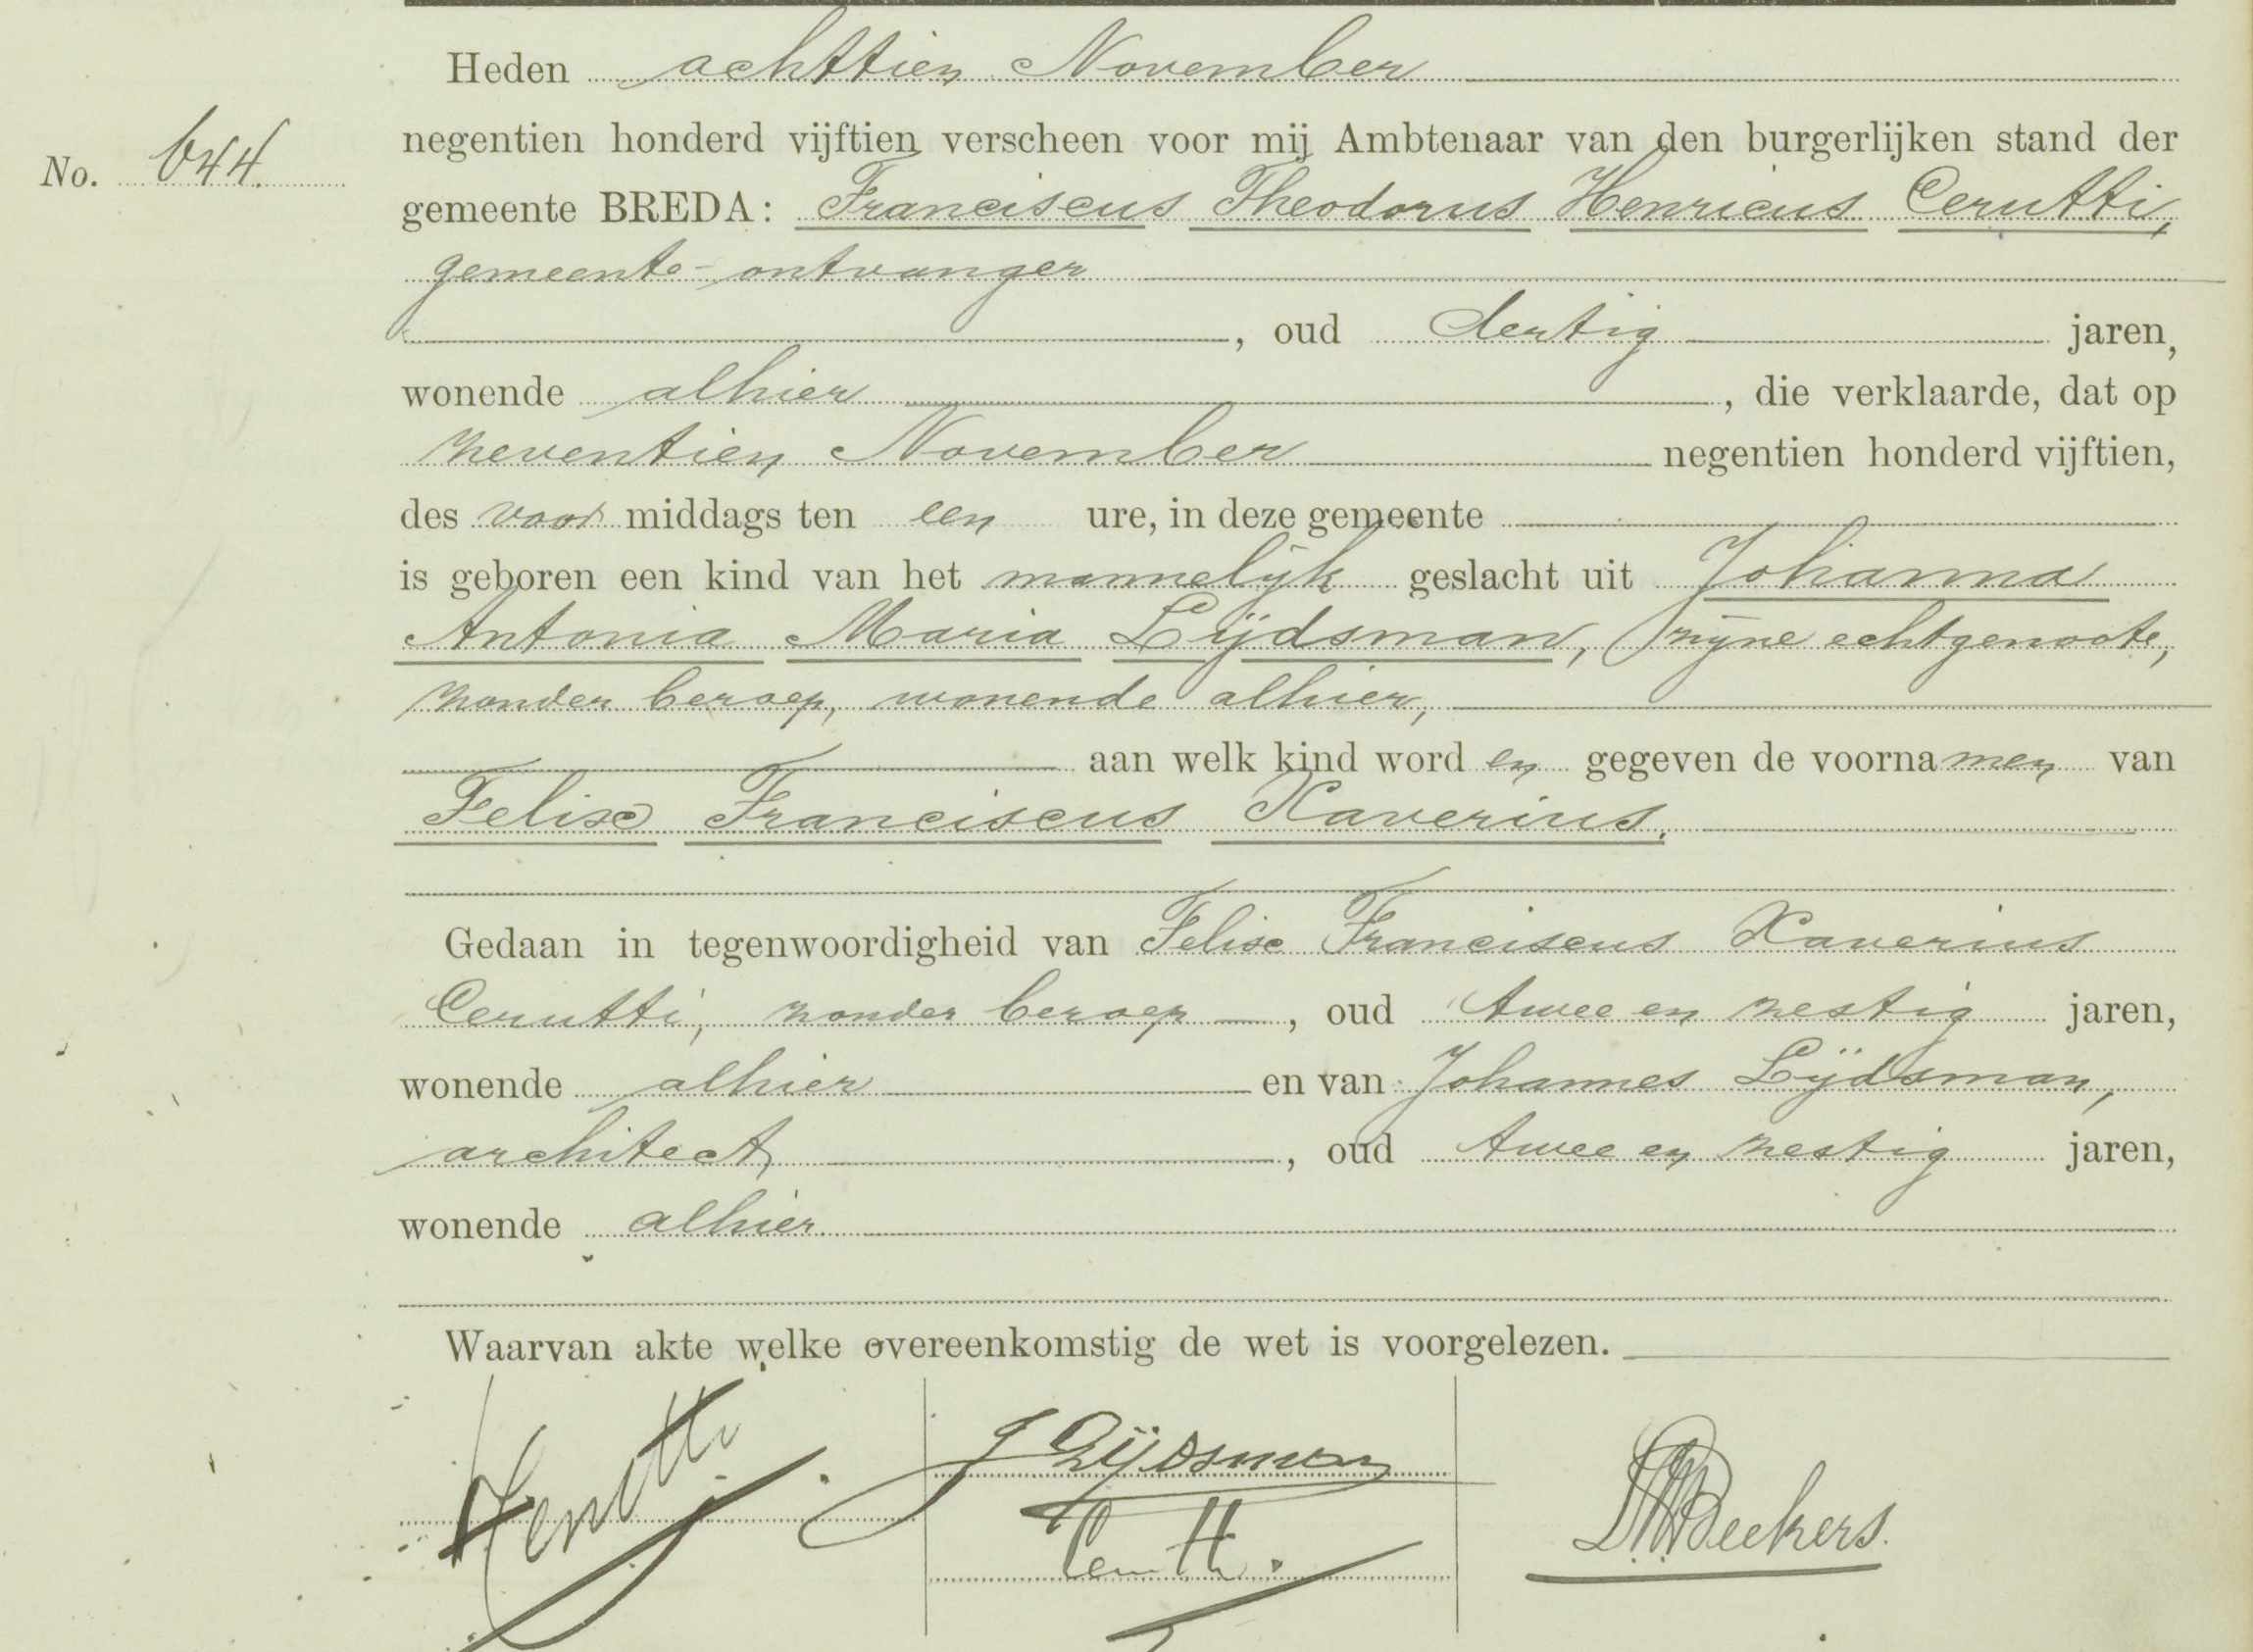 Heden achttien November
No. 644.
negentien honderd vijftien verscheen voor mij Ambtenaar van den burgerlijken stand der
gemeente BREDA: Franciscus Theodorus Henricus Cerutti,
gemeente-ontvanger
, oud dertig jaren,
wonende alhier, die verklaarde, dat op
zeventien November negentien honderd vijftien,
des voor middags ten een ure, in deze gemeente
is geboren een kind van het mannelijk geslacht uit Johanna
Antonia Maria Lijdsman, zijne echtgenoote,
zonder beroep, wonende alhier,
aan welk kind word en gegeven de voorna men van
Felix Franciscus Xaverius.
Gedaan in tegenwoordigheid van Felix Franciscus Xaverius
Cerutti, zonder beroep, oud twee en zestig jaren,
wonende alhier en van Johannes Lijdsman,
architect, oud twee en zestig jaren,
wonende alhier.
Waarvan akte welke overeenkomstig de wet is voorgelezen.
Cerutti
J Lijdsman
Cerutti.
Beckers.